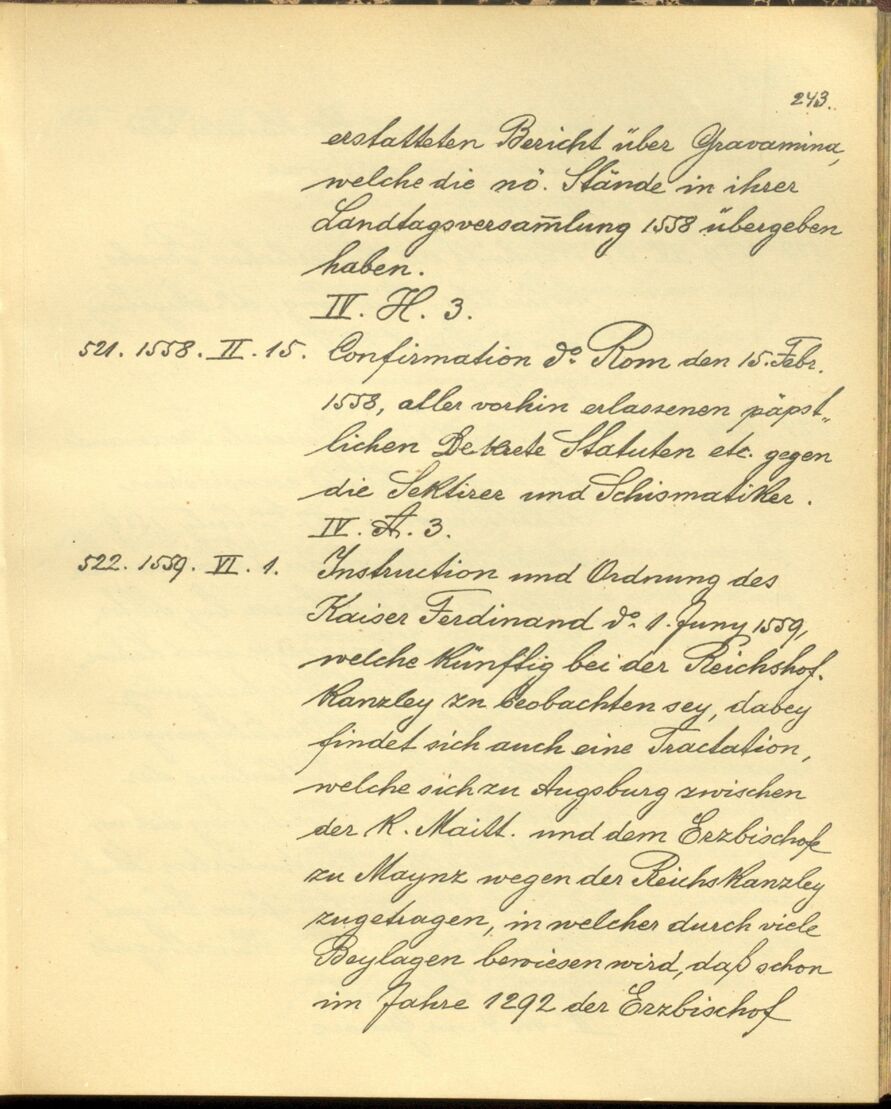 243.
erstatteten Bericht über Gravamina,
welche die nö. Stände in ihrer
Landtagsversam̅lung 1558 übergeben
haben.
IV. H. 3.
521. 1558. II. 15. Confirmation do. Rom den 15. Febr.
1558, aller vorhin erlassenen päpst„
lichen Dekrete Statuten etc. gegen
die Sektirer und Schismatiker.
IV. A. 3.
522. 1559. VI. 1. Instruction und Ordnung des
Kaiser Ferdinand do. 1. Juny 1559,
welche künftig bei der Reichshof-
kanzley zu beobachten sey, dabey
findet sich auch eine Tractation,
welche sich zu Augsburg zwischen
der K. Maitt. und dem Erzbischofe
zu Maynz wegen der Reichskanzley
zugetragen, in welcher durch viele
Beylagen bewiesen wird, daß schon
im Jahre 1292 der Erzbischof